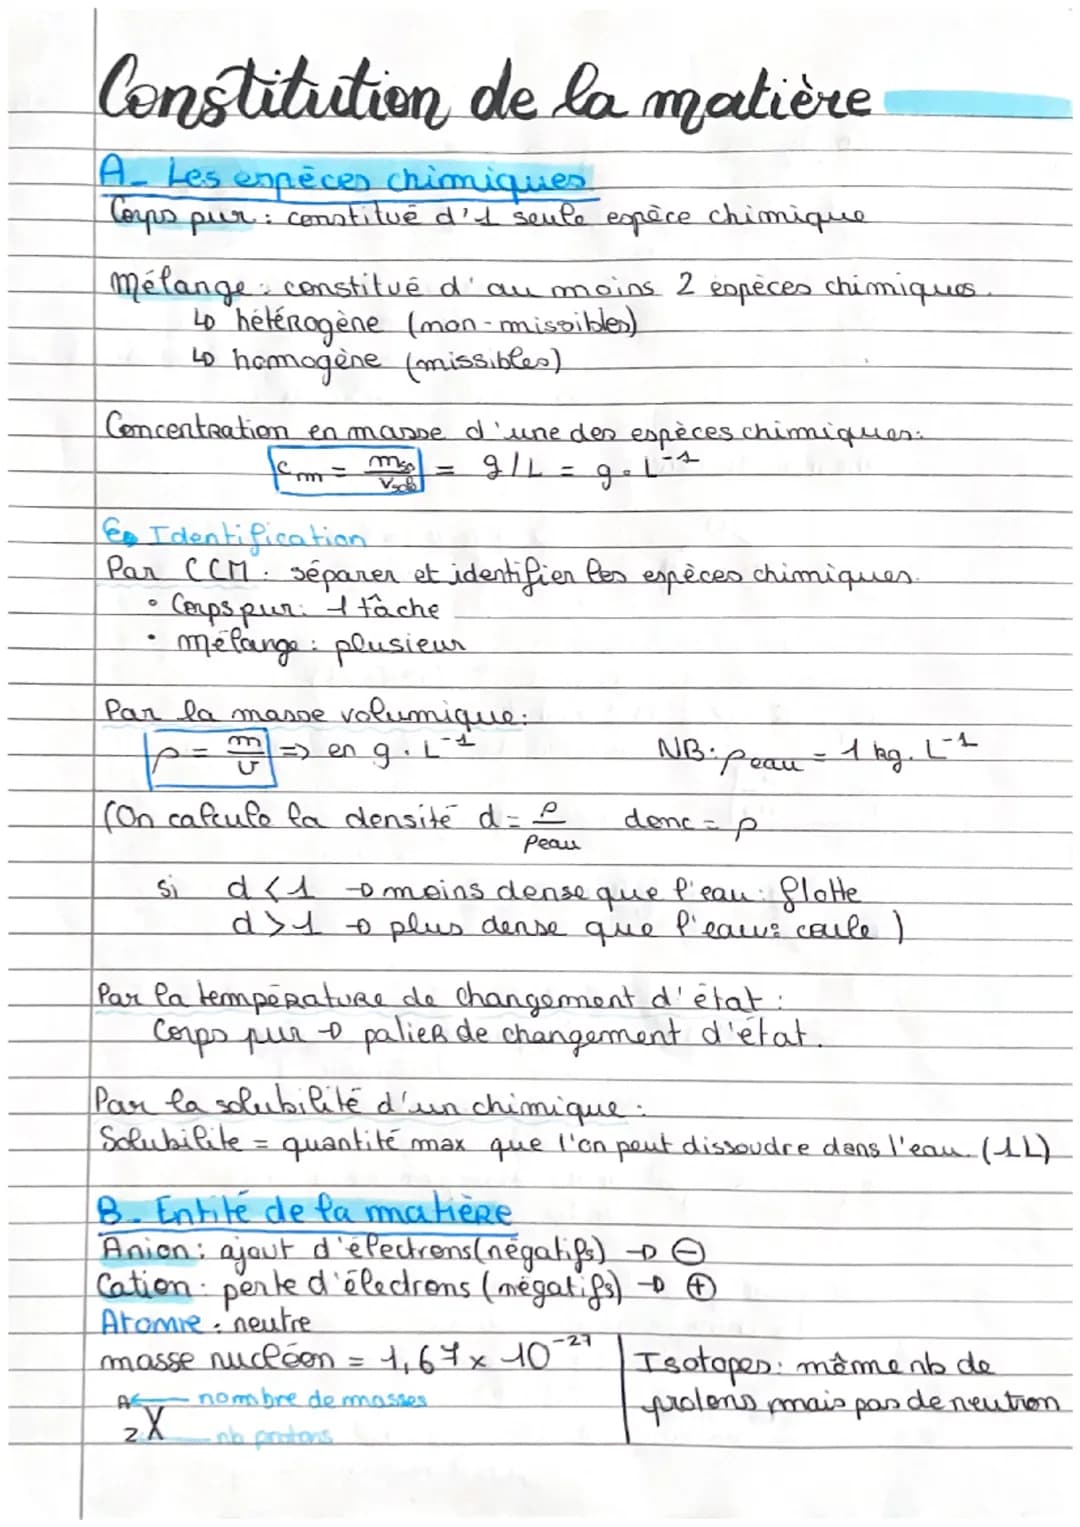 Constitution de la matière
A- Les espèces chimiques
Corps pur : constitué d'1 seule espèce chimique
Mélange : constitué d'au moins 2 espèces chimiques.
↳ hétérogène (non-missibles)
↳ homogène (missibles)
Concentration en masse d'une des espèces chimiques:
Cm = m / Vsol = g/L = g.L⁻¹
Identification
Par CCM : séparer et identifier les espèces chimiques.
• Corps pur : 1 tâche
• mélange : plusieur
Par la masse volumique:
ρ = m/v => en g.L⁻¹ NB: ρeau = 1 kg.L⁻¹
(On calcule la densité d = ρ/ρeau donc = ρ
si d < 1 → moins dense que l'eau : flotte
d > 1 → plus dense que l'eau : coule )
Par la température de changement d'état :
Corps pur → palier de changement d'état.
Par la solubilité d'un chimique :
Solubilite = quantité max que l'on peut dissoudre dans l'eau. (1L)
B- Entité de la matière
Anion : ajout d'électrons (négatifs) → ⊖
Cation : perte d'électrons (négatifs) → ⊕
Atome : neutre
masse nucléon = 1,67 x 10⁻²⁷
A ← nombre de masses
Z X nb protons
Isotopes : même nb de
protons mais pas de neutron